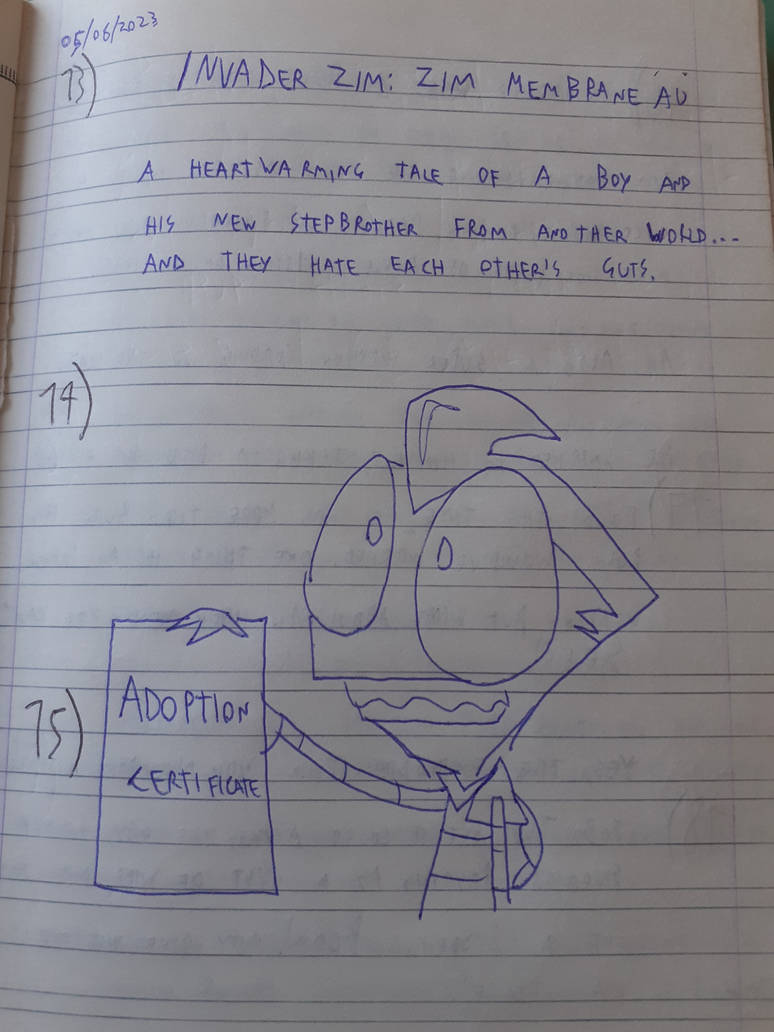 05/06/2023
13) INVADER ZIM: ZIM MEMBRANE AU
A HEARTWARMING TALE OF A BOY AND
HIS NEW STEPBROTHER FROM ANOTHER WORLD...
AND THEY HATE EACH OTHER'S GUTS.
14)
15)
ADOPTION
CERTIFICATE